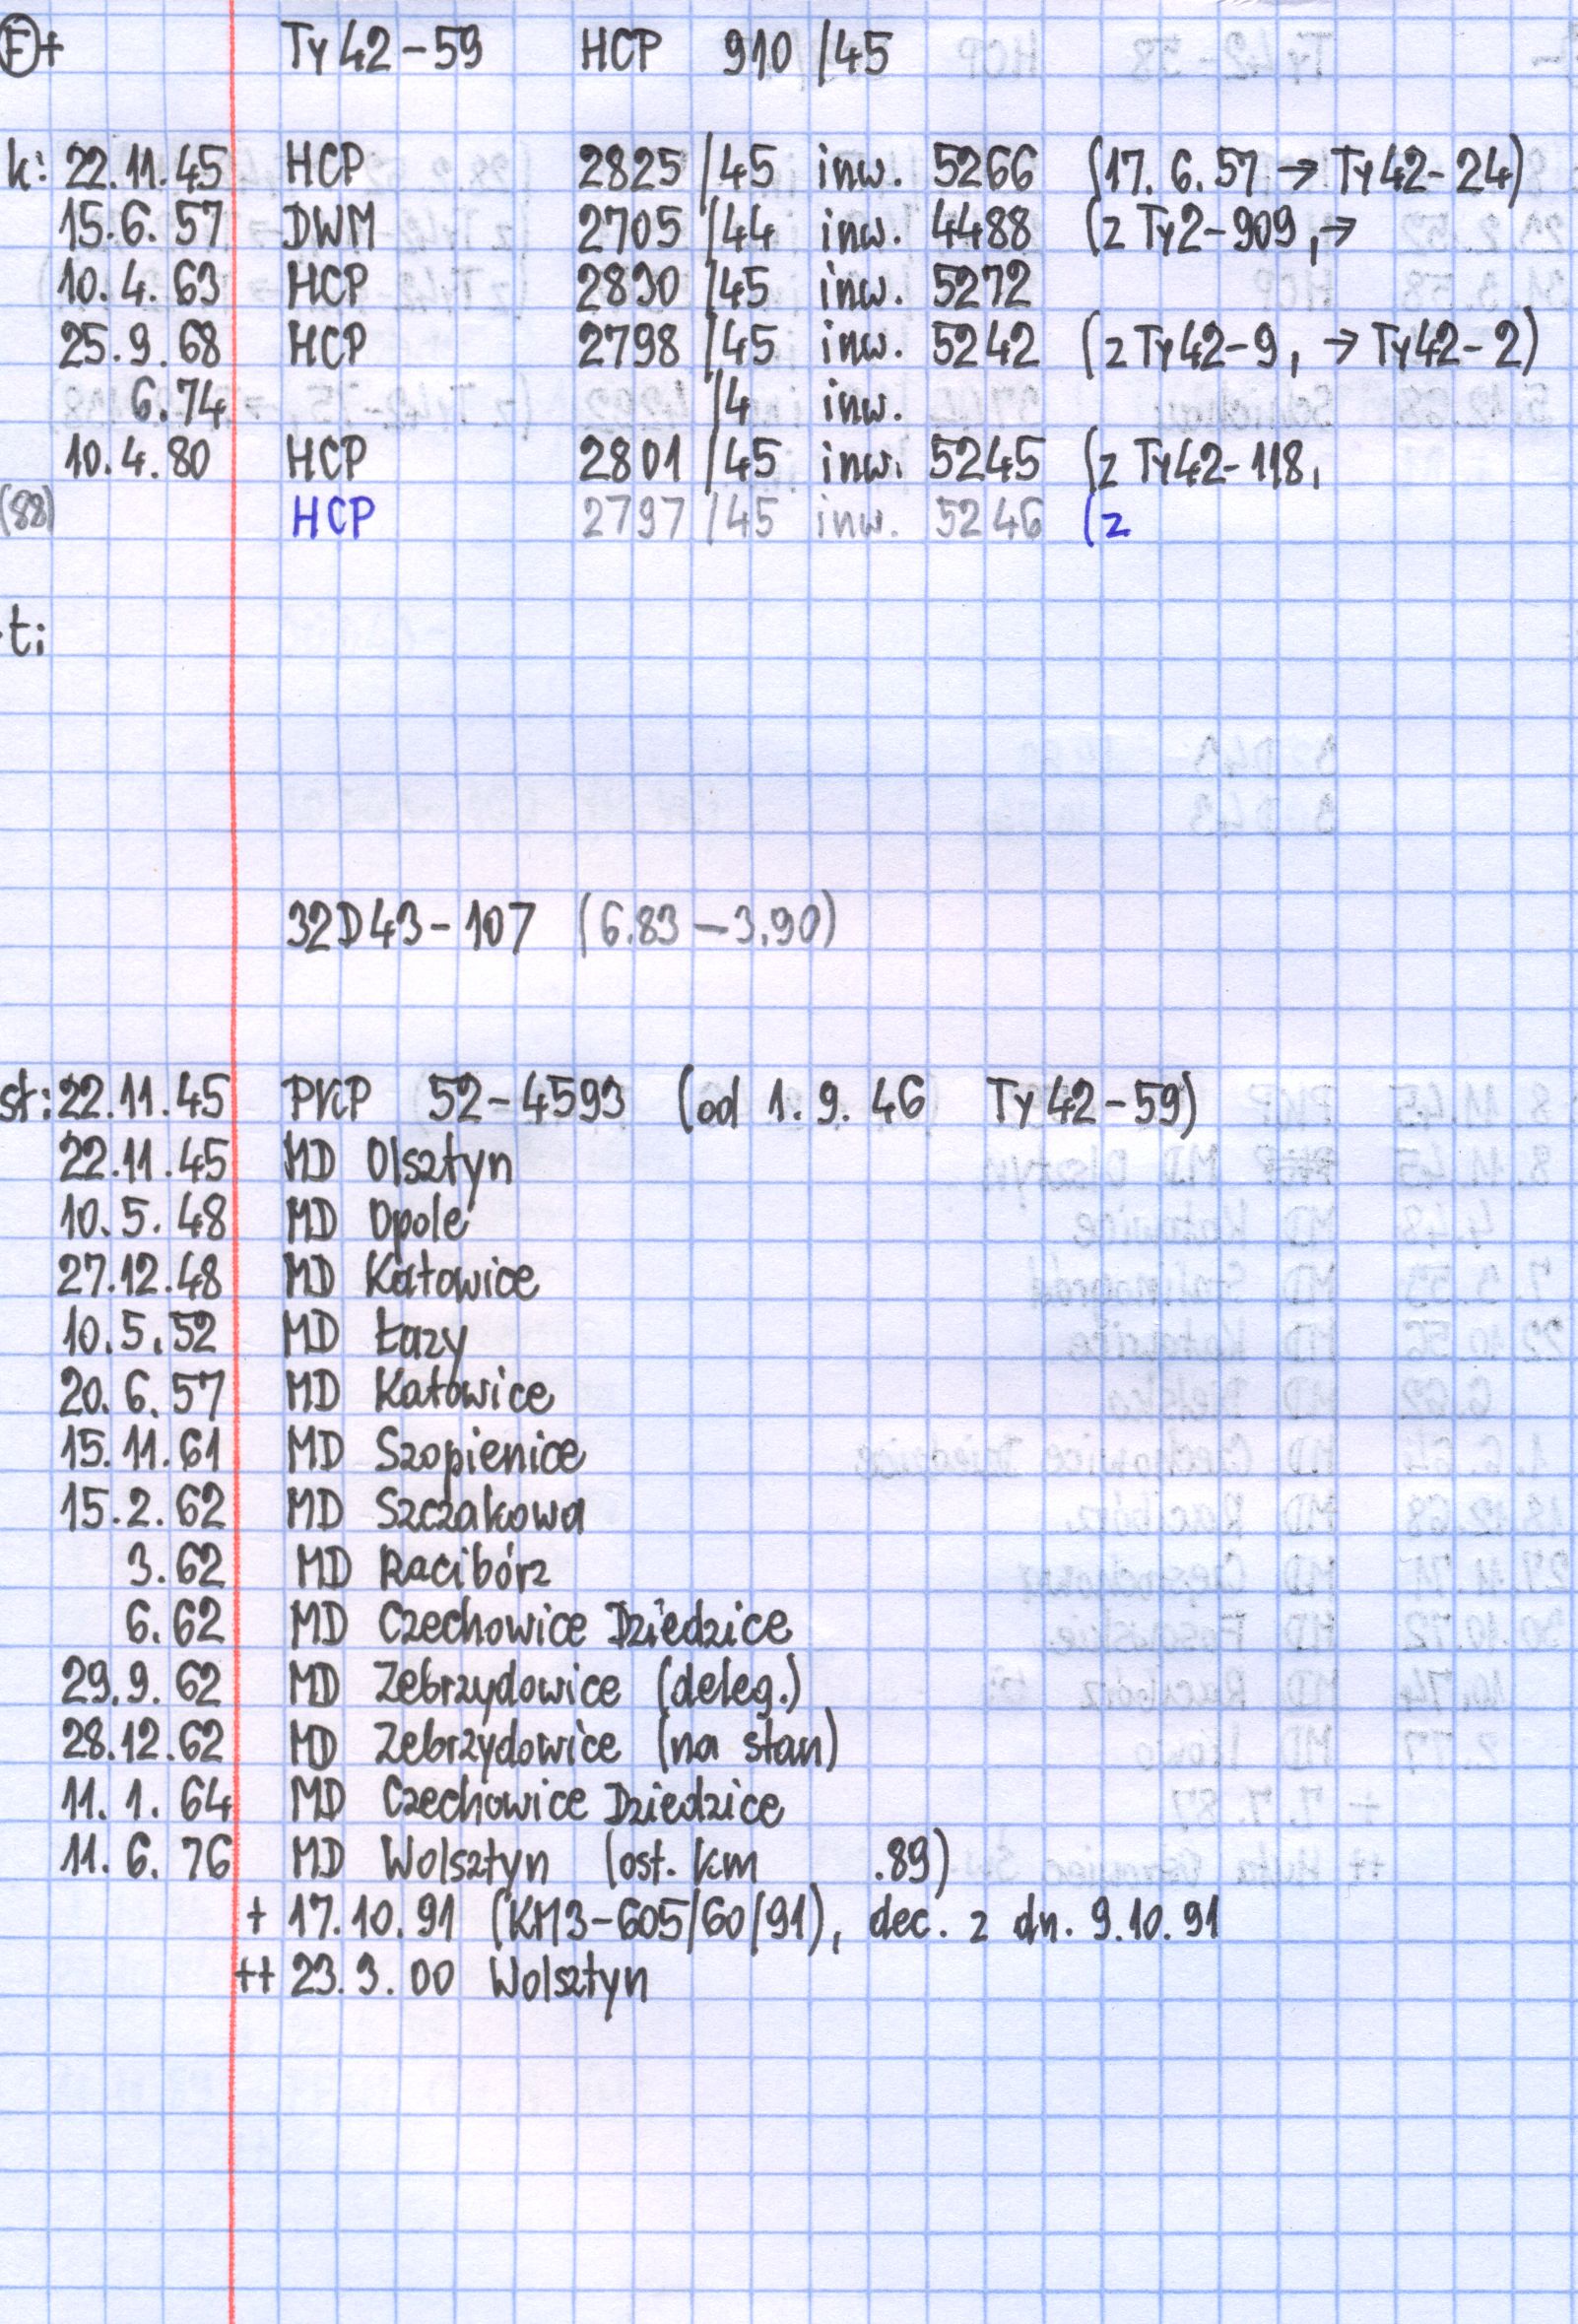 F+ Ty42-59 HCP 910/45
k: 22.11.45 HCP 2825/45 inw. 5266 (17.6.57 → Ty42-24)
15.6.57 DWM 2705/44 inw. 4488 (z Ty2-909, →
10.4.63 HCP 2830/45 inw. 5272
25.9.68 HCP 2798/45 inw. 5242 (z Ty42-9, → Ty42-2)
6.74 /4 inw.
10.4.80 HCP 2801/45 inw. 5245 (z Ty42-118,
(88) HCP 2797/45 inw. 5246 (z
t:
32D43-107 (6.83-3.90)
st: 22.11.45 PKP 52-4593 (od 1.9.46 Ty42-59)
22.11.45 MD Olsztyn
10.5.48 MD Opole
27.12.48 MD Katowice
10.5.52 MD Łazy
20.6.57 MD Katowice
15.11.61 MD Szopienice
15.2.62 MD Szczakowa
3.62 MD Racibórz
6.62 MD Czechowice Dziedzice
29.9.62 MD Zebrzydowice (deleg.)
28.12.62 MD Zebrzydowice (na stan)
11.1.64 MD Czechowice Dziedzice
11.6.76 MD Wolsztyn (ost. km .89)
+ 17.10.91 (KM3-605/60/91), dec. z dn. 9.10.91
++ 23.3.00 Wolsztyn